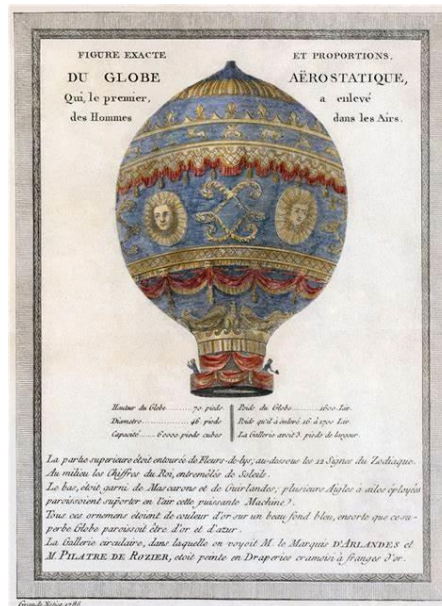 FIGURE EXACTE ET PROPORTIONS,
DU GLOBE AËROSTATIQUE,
Qui, le premier, a enlevé
des Hommes dans les Airs.
Hauteur du Globe ........ 70 pieds
Diametre ........ 46 pieds
Capacité ...... 60000 pieds cubes
Poids du Globe ........ 1600 Liv.
Poids qu'il a enlevé 16 à 1700 Liv.
La Gallerie avoit 3. pieds de largeur.
La partie superieure étoit entourée de Fleurs-de-lys, au-dessous les 12 Signes du Zodiaque.
Au milieu les Chiffres du Roi, entremêlés de Soleils.
Le bas, étoit garni de Mascarons et de Guirlandes; plusieurs Aigles à ailes éployées
paroissoient suporter en l'air cette puissante Machine.
Tous ces ornemens étoient de couleur d'or sur un beau fond bleu, ensorte que ce su-
perbe Globe paroissoit être d'or et d'azur.
La Gallerie circulaire, dans laquelle on voyoit M. le Marquis D'ARLANDES et
M. PILATRE DE ROZIER, etoit peinte en Draperies cramoisi à franges d'or.
1786